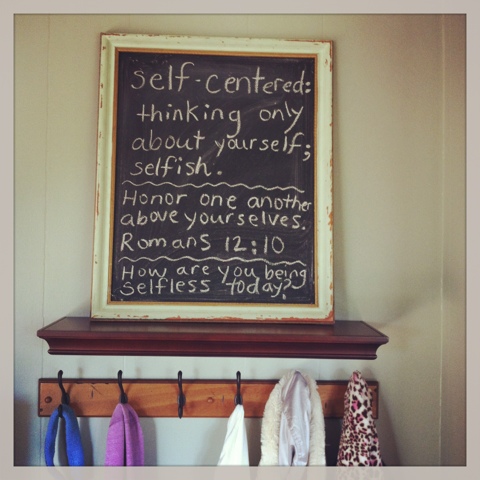 self-centered:
thinking only
about yourself;
selfish.
Honor one another
above yourselves.
Romans 12:10
How are you being
selfless today?